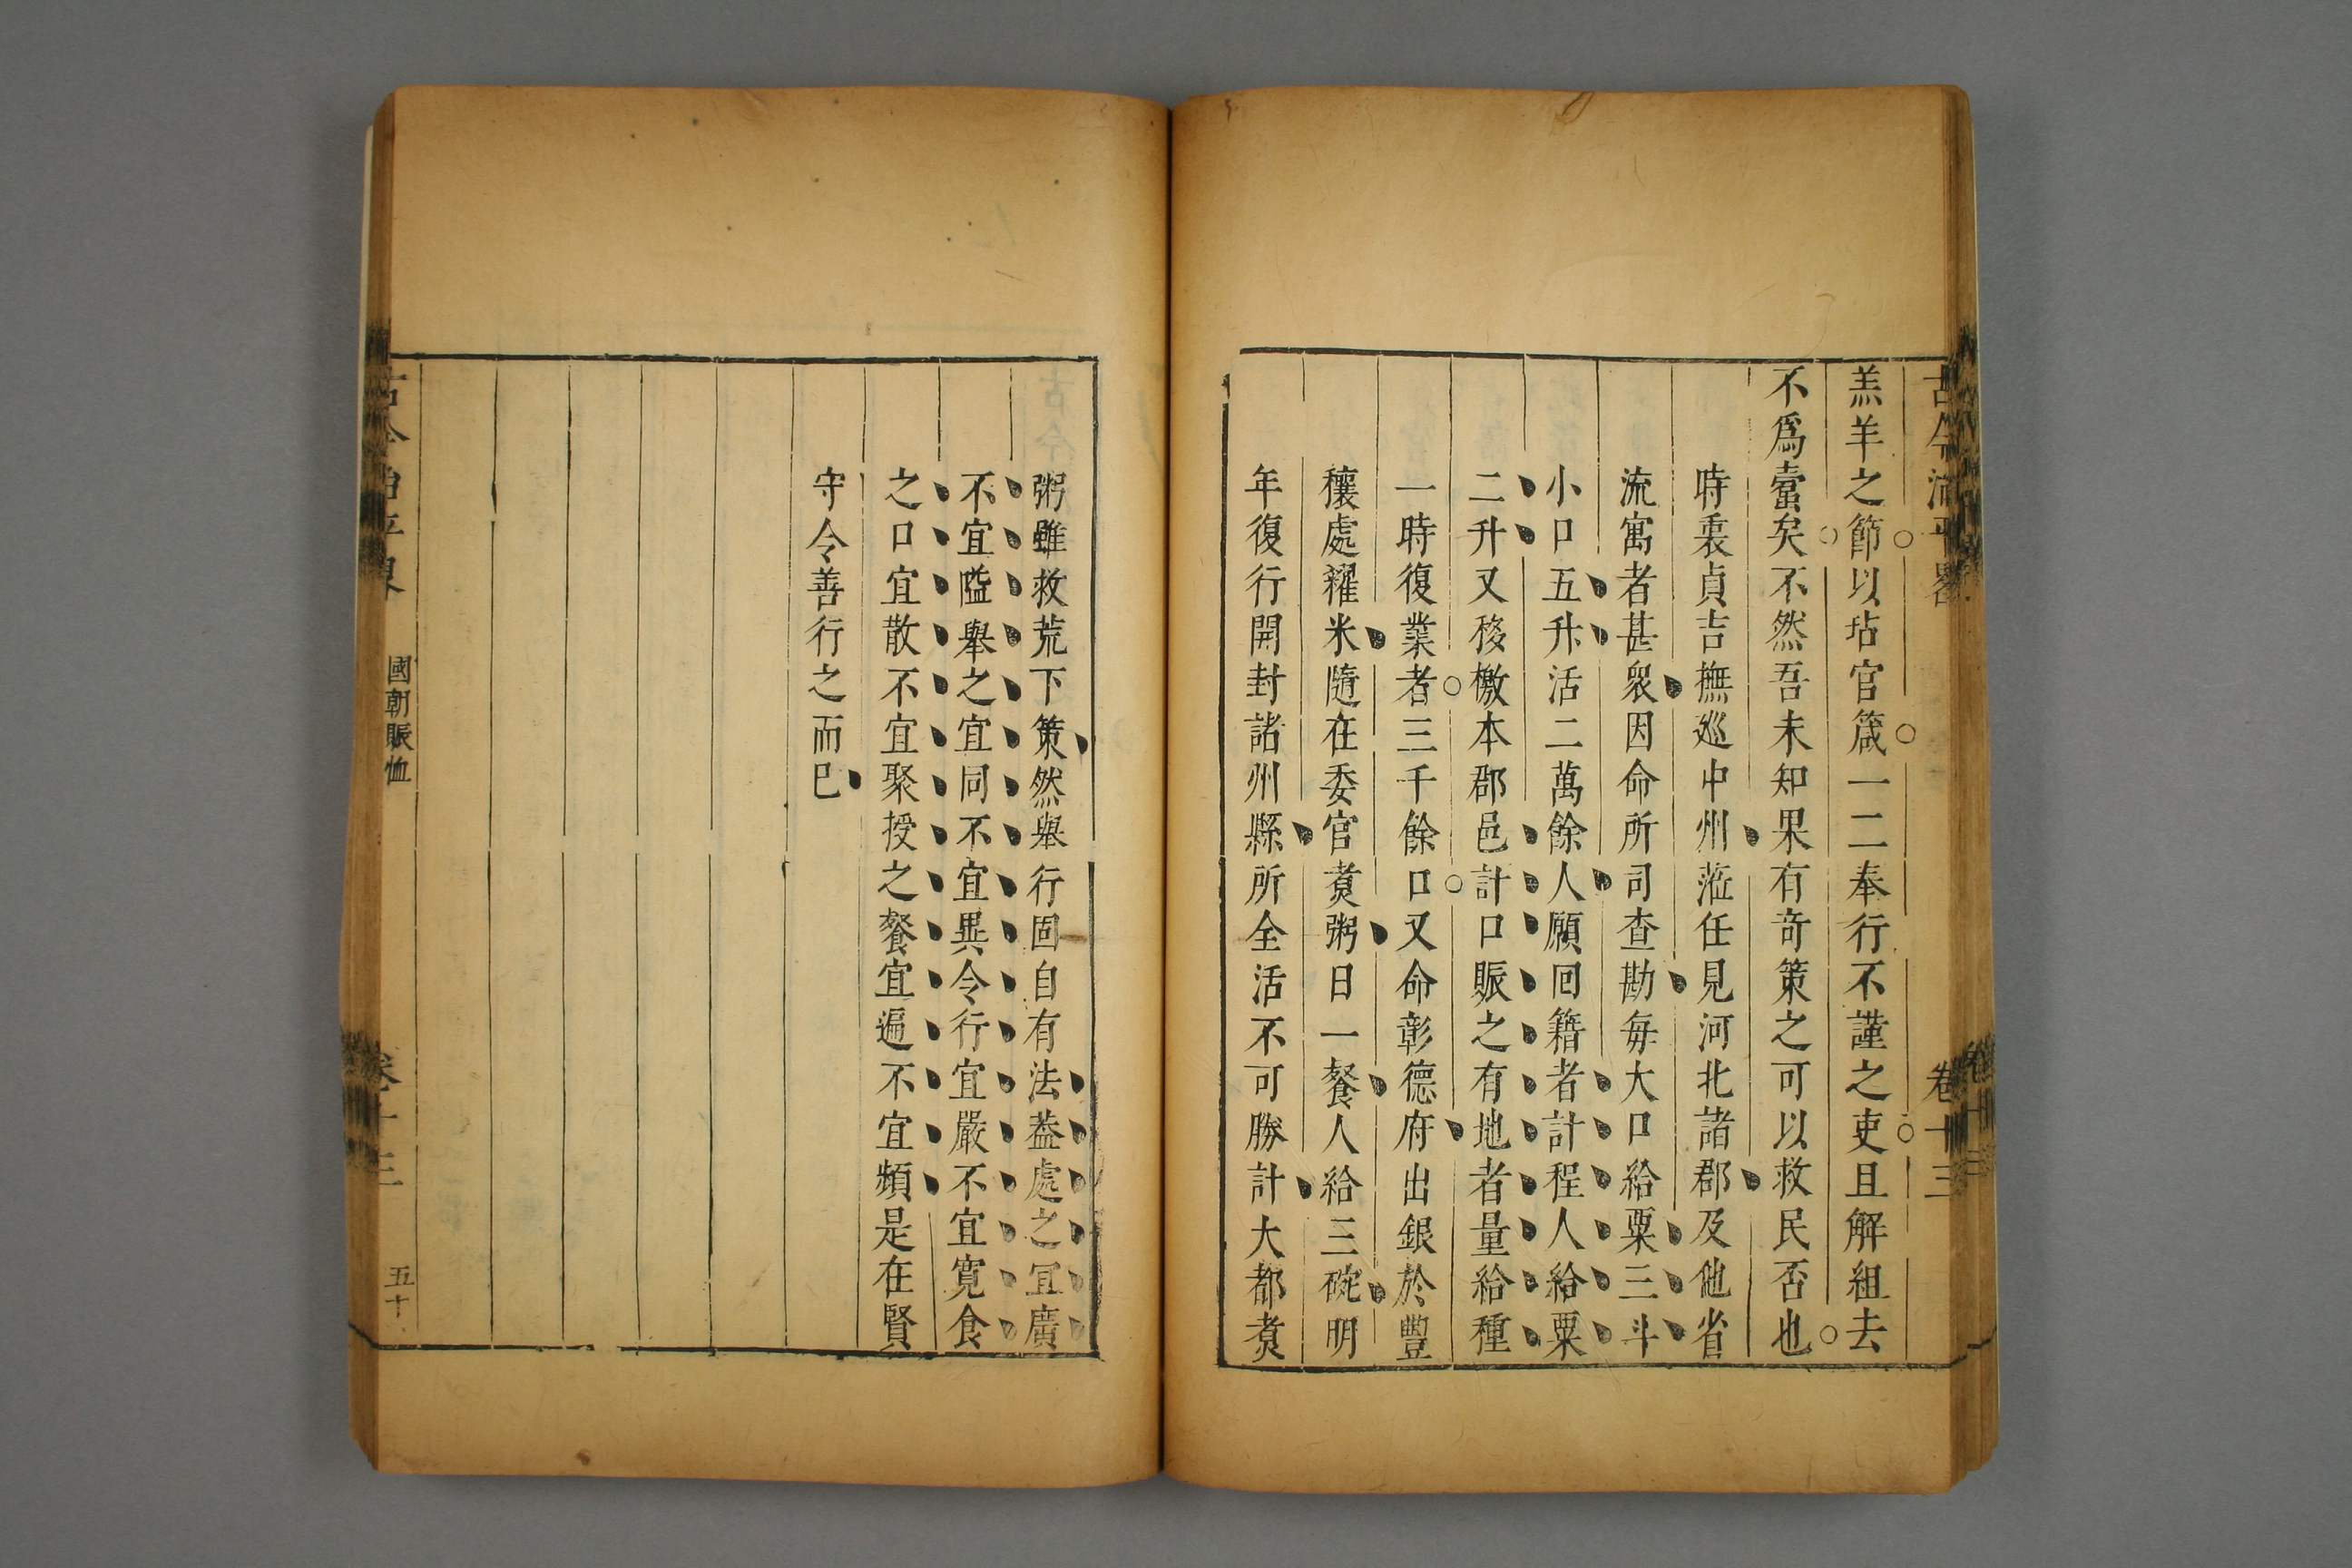 古今治平畧
卷十三
羔羊之節以玷官箴一二奉行不謹之吏且解組去
不爲蠧矣不然吾未知果有竒策之可以救民否也
時袁貞吉撫巡中州蒞任見河北諸郡及他省
流寓者甚衆因命所司查勘每大口給粟三斗
小口五升活二萬餘人願回籍者計程人給粟
二升又移檄本郡邑計口賑之有地者量給種
一時復業者三千餘口又命彰德府出銀於豐
穰處糴米隨在委官煑粥日一餐人給三碗明
年復行開封諸州縣所全活不可勝計大都煑
粥雖救荒下策然舉行固自有法葢處之宜廣
不宜隘舉之宜同不宜異令行宜嚴不宜寛食
之口宜散不宜聚授之餐宜遍不宜頻是在賢
守令善行之而已
國朝賑恤
卷十三
五十